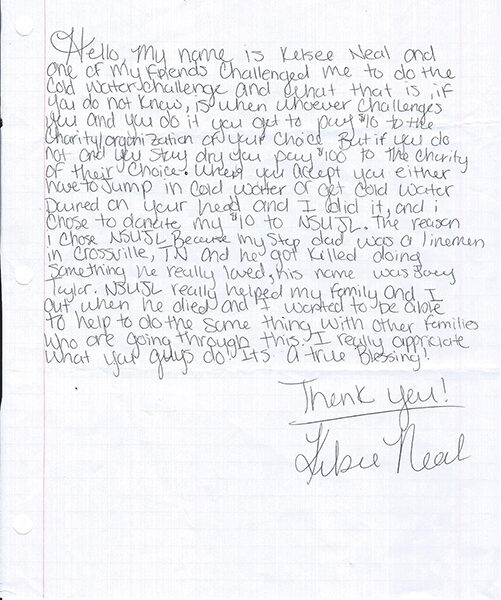 Hello, My name is Kelsee Neal and
one of my friends challenged me to do the
cold water challenge and what that is, if
you do not know, is when whoever challenges
you and you do it you get to pay $10 to the
charity/organization of your choice But if you do
not and you stay dry you pay $100 to the charity
of their choice. When you accept you either
have to jump in cold water or get cold water
poured on your head and I did it, and i
chose to donate my $10 to NSUJL. The reason
i chose NSUJL Because my step dad was a linemen
in Crossville, TN and he got killed doing
something he really loved, his name was Joey
Taylor. NSUJL really helped my family and I
out when he died and I wanted to be able
to help to do the same thing with other families
who are going through this. I really appriciate
what you guys do! Its a true Blessing!
Thank you!
Kelsee Neal